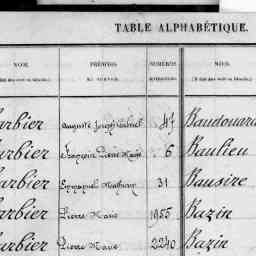 TABLE ALPHABÉTIQUE.
NOM. PRÉNOMS NUMÉROS NOM.
arbier Auguste Joseph 47 Baudouard
arbier François Pierre Marie 6 Baulieu
arbier Emmanuel Mathurin 31 Bausire
arbier Pierre Marie 1955 Bazin
arbier Pierre Marie 2240 Bazin